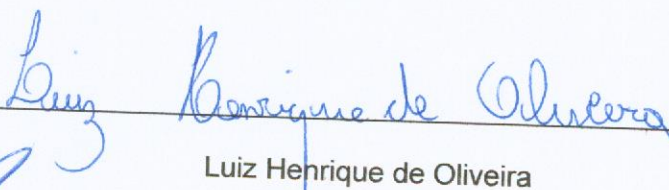 Luiz Henrique de Oliveira
Luiz Henrique de Oliveira